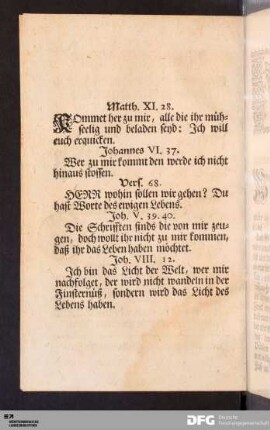 Matth. XI. 28.
KOmmet her zu mir, alle die ihr müh-
seelig und beladen seyd: Ich will
euch erquicken.
Johannes VI. 37.
Wer zu mir kommt den werde ich nicht
hinaus stossen.
Vers. 68.
HERR wohin sollen wir gehen? Du
hast Worte des ewigen Lebens.
Joh. V. 39. 40.
Die Schrifften sinds die von mir zeu-
gen, doch wollt ihr nicht zu mir kommen,
daß ihr das Leben haben möchtet.
Joh. VIII. 12.
Ich bin das Licht der Welt, wer mir
nachfolget, der wird nicht wandeln in der
Finsternüß, sondern wird das Licht des
Lebens haben.
DFG